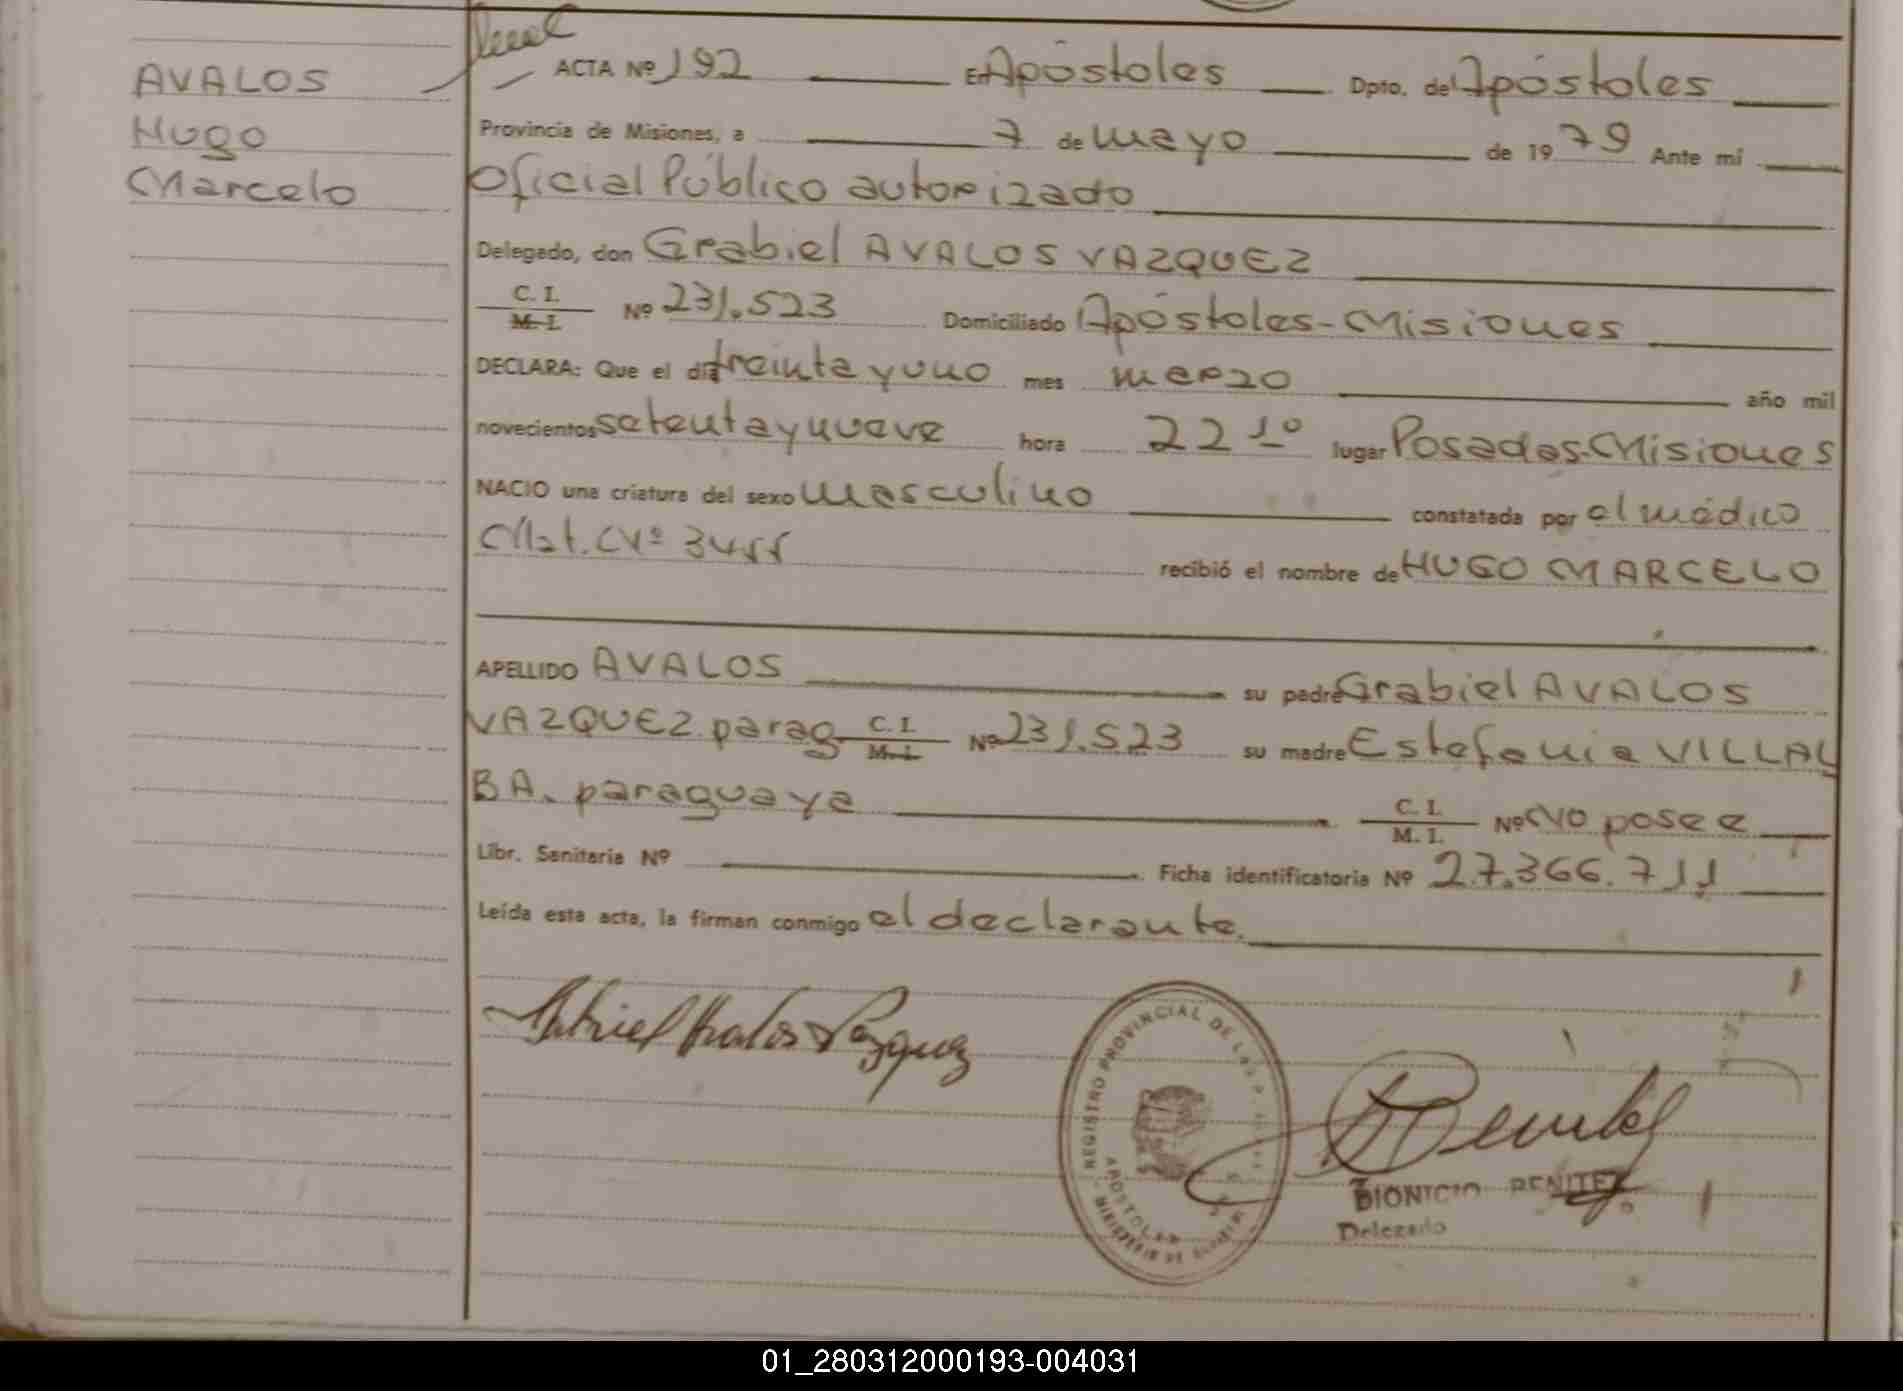 AVALOS
Hugo
Marcelo
ACTA Nº 192 En Apóstoles Dpto. de Apóstoles
Provincia de Misiones, a 7 de mayo de 1979 Ante mi
Oficial Público autorizado
Delegado, don Grabiel AVALOS VAZQUEZ
C. I.
M. I. Nº 231.523 Domiciliado Apóstoles-Misiones
DECLARA: Que el día treinta y uno mes marzo año mil
novecientos setenta y nueve hora 22 10 lugar Posadas-Misiones
NACIO una criatura del sexo masculino constatada por el médico
Mat. Nº 3455 recibió el nombre de HUGO MARCELO
APELLIDO AVALOS su padre Grabiel AVALOS
VAZQUEZ. parag C. I.
M. I. Nº 231.523 su madre Estefania VILLAL
BA. paraguaya C. I.
M. I. Nº No posee
Libr. Sanitaria Nº Ficha identificatoria Nº 27.366.711
Leída esta acta, la firman conmigo el declarante.
Gabriel Avalos Vazquez
REGISTRO PROVINCIAL DE LAS
APOSTOLES
MINISTERIO DE GOBIERNO
Benitez
DIONICIO BENITEZ
Delegado
01_280312000193-004031